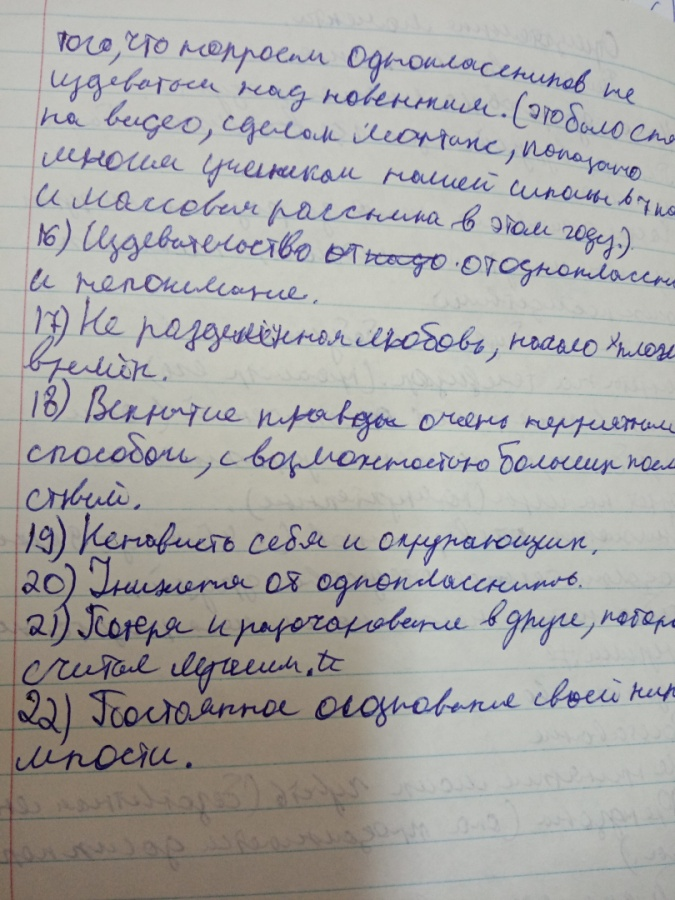 того, что попросил одноклассников не
издеваться над новеньким. (это было
на видео, сделал монтаж, показано
многим ученикам нашей школы в 7
и массовая рассылка в этом году.)
16) Издевательство от одноклассни
и непонимание.
17) Не разделённая любовь, начало
времён.
18) Вскрытие правды очень неприятным
способом, с возможностью больших посл
ствий.
19) Ненависть себя и окружающих.
20) Унижения от одноклассников.
21) Потеря и разочарование в друге, котор
считал лучшим.
22) Постоянное осознование своей ник
мности.